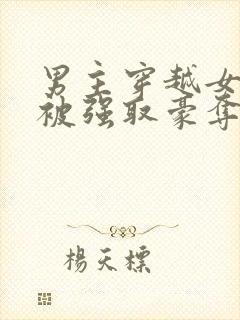 男主穿越女
被强取豪夺
楊天標